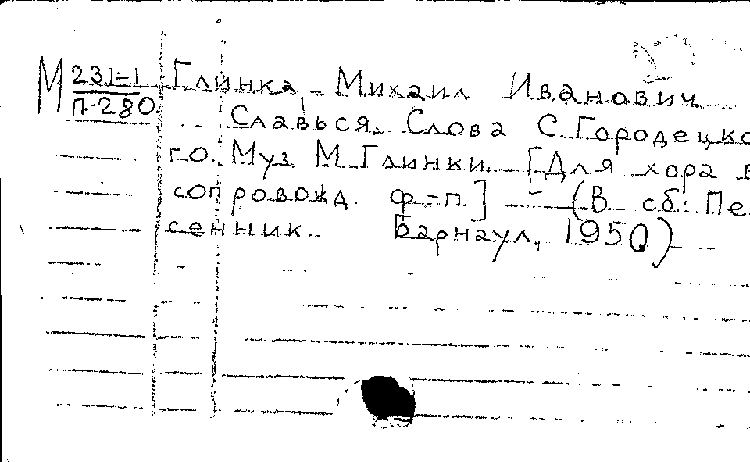 М 231-1 Глинка, Михаил Иванович
П-280
Славься. Слова С. Городецко
го. Муз М Глинки. [Для хора в
сопровожд. ф-п] — (В сб: Пе
сенник. Барнаул, 1950)